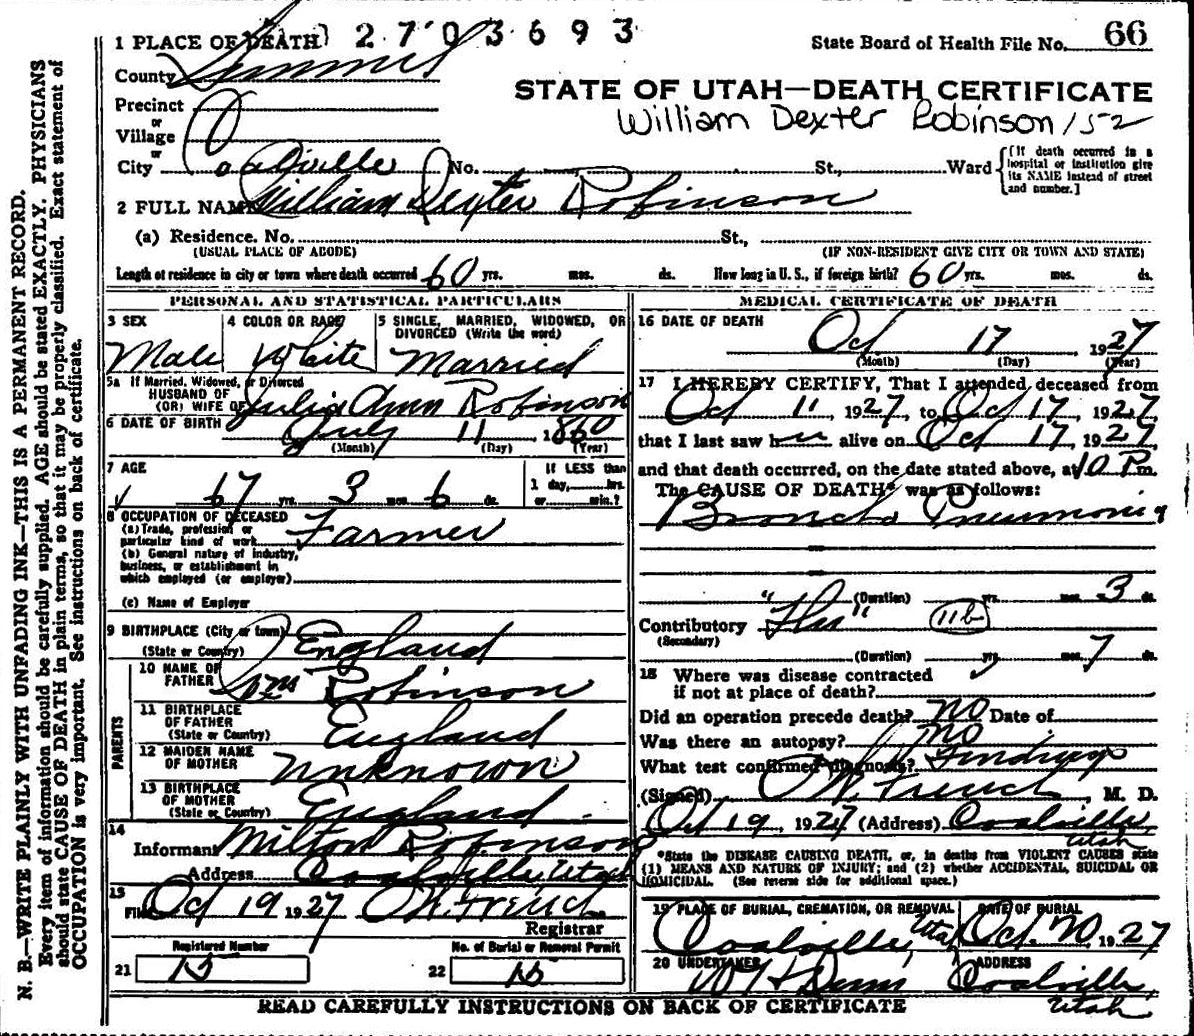 1 PLACE OF DEATH 2703693
State Board of Health File No. 66
County Summit
STATE OF UTAH—DEATH CERTIFICATE
Precinct
or
Village
William Dexter Robinson 152
or
City Coalville No. St., Ward
[If death occurred in a hospital or institution give its NAME instead of street and number.]
2 FULL NAME William Dexter Robinson
(a) Residence. No. St.,
(USUAL PLACE OF ABODE) (IF NON-RESIDENT GIVE CITY OR TOWN AND STATE)
Length of residence in city or town where death occurred 60 yrs. mos. ds. How long in U. S., if foreign birth? 60 yrs. mos. ds.
PERSONAL AND STATISTICAL PARTICULARS
3 SEX 4 COLOR OR RACE 5 SINGLE, MARRIED, WIDOWED, OR DIVORCED (Write the word)
Male White Married
5a If Married, Widowed, or Divorced
HUSBAND OF
(OR) WIFE OF Julia Ann Robinson
6 DATE OF BIRTH July 11 1860
(Month) (Day) (Year)
7 AGE If LESS than
1 day, hrs.
67 yrs. 3 mos. 6 ds. or min.?
8 OCCUPATION OF DECEASED
(a) Trade, profession or
particular kind of work Farmer
(b) General nature of industry,
business, or establishment in
which employed (or employer)
(c) Name of Employer
9 BIRTHPLACE (City or town)
(State or Country) England
PARENTS
10 NAME OF
FATHER Wm Robinson
11 BIRTHPLACE
OF FATHER
(State or Country) England
12 MAIDEN NAME
OF MOTHER unknown
13 BIRTHPLACE
OF MOTHER
(State or Country) England
14
Informant Milton Robinson
Address Coalville, Utah
15
Filed Oct 19 1927
Registrar
Registered Number No. of Burial or Removal Permit
21 15 22 15
MEDICAL CERTIFICATE OF DEATH
16 DATE OF DEATH
Oct 17 1927
(Month) (Day) (Year)
17 I HEREBY CERTIFY, That I attended deceased from
Oct 11, 1927, to Oct 17, 1927
that I last saw him alive on Oct 17, 1927
and that death occurred, on the date stated above, at 10 P.m.
The CAUSE OF DEATH* was as follows:
Broncho Pneumonia
(Duration) yrs. mos. 3 ds.
Contributory "Flu" 11b
(Secondary)
(Duration) yrs. mos. 7 ds.
18 Where was disease contracted
if not at place of death?
Did an operation precede death? no Date of
Was there an autopsy? no
What test confirmed diagnosis? Findings
(Signed), M. D.
Oct 19, 1927 (Address) Coalville,
Utah
*State the DISEASE CAUSING DEATH, or, in deaths from VIOLENT CAUSES state
(1) MEANS AND NATURE OF INJURY; and (2) whether ACCIDENTAL, SUICIDAL OR
HOMICIDAL. (See reverse side for additional space.)
19 PLACE OF BURIAL, CREMATION, OR REMOVAL DATE OF BURIAL
Coalville, Utah Oct. 20, 1927
20 UNDERTAKER ADDRESS
Coalville,
Utah
READ CAREFULLY INSTRUCTIONS ON BACK OF CERTIFICATE
N. B.—WRITE PLAINLY WITH UNFADING INK—THIS IS A PERMANENT RECORD.
Every item of information should be carefully supplied. AGE should be stated EXACTLY. PHYSICIANS
should state CAUSE OF DEATH in plain terms, so that it may be properly classified. Exact statement of
OCCUPATION is very important. See instructions on back of certificate.